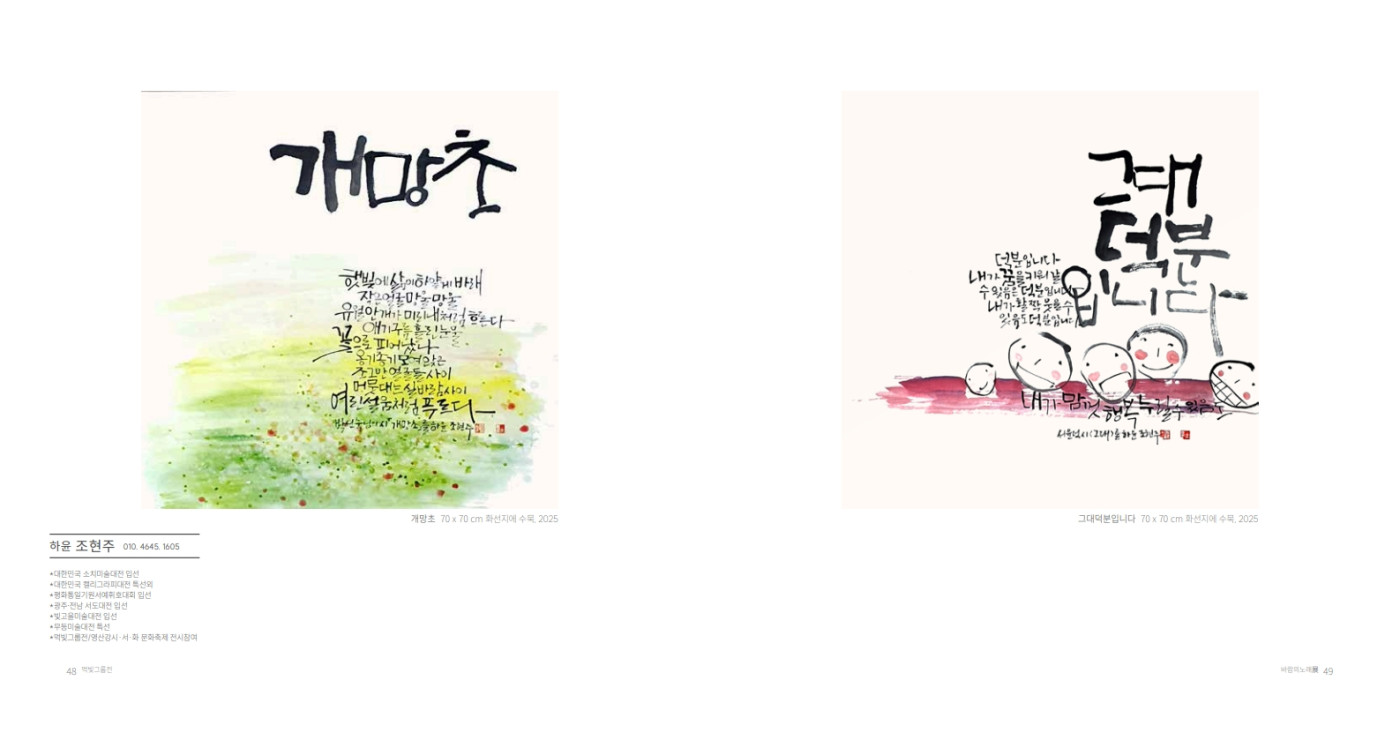 개망초
햇빛에 삶이 하얗게 바래
작은 얼굴 마울망울
유월 안개가 미리내처럼 흐른다
애기구름 흘린 눈물
꽃으로 피어났나
옹기종기 모여 앉은
조그만 얼굴들 사이
머뭇대는 실바람 사이
여린 설움처럼 푸르다
개망초를 하윤 조현주
개망초 70 x 70 cm 화선지에 수묵, 2025
하윤 조현주 010. 4645. 1605
•대한민국 소치미술대전 입선
•대한민국 캘리그라피대전 특선외
•평화통일기원서예휘호대회 입선
•광주·전남 서도대전 입선
•빛고을미술대전 입선
•무등미술대전 특선
•먹빛그룹전/영산강시·서·화 문화축제 전시참여
48 먹빛그룹전
그대
덕분
입니다
덕분입니다
내가 꿈을 키워 갈
수 있음은 덕분입니다
내가 활짝 웃을 수
있음도 덕분입니다
내가 맘껏 행복 누릴 수 있음은
하윤 조현주
그대덕분입니다 70 x 70 cm 화선지에 수묵, 2025
바람의노래展 49